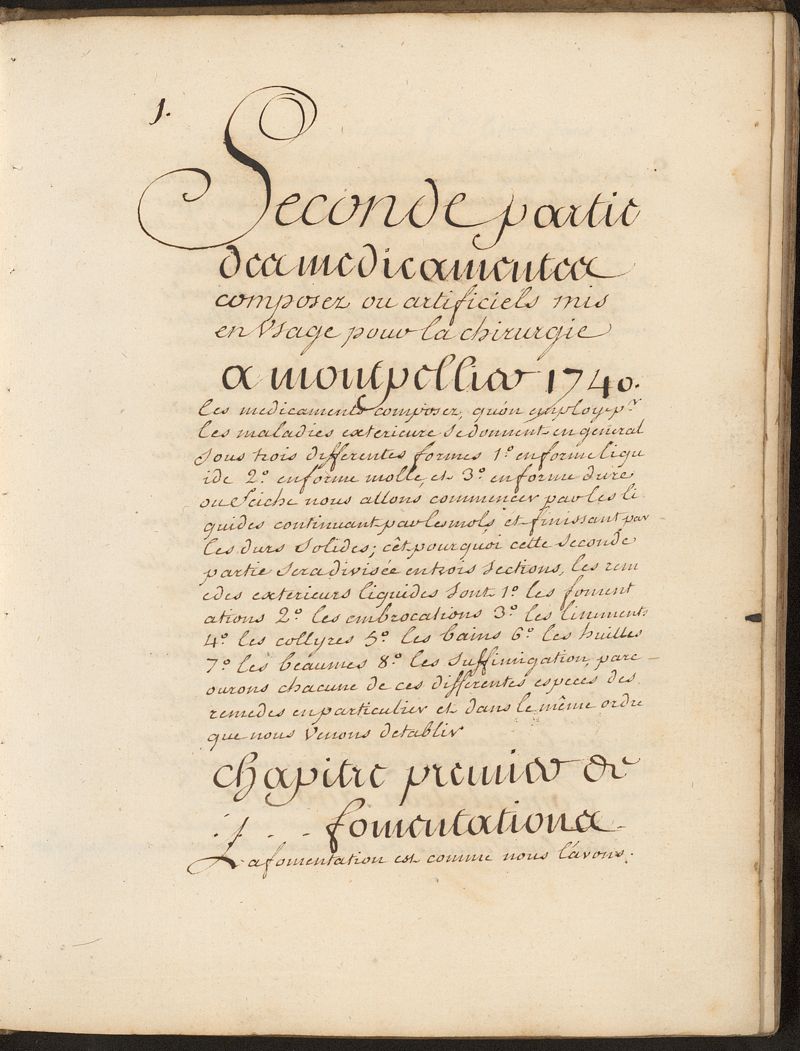 1.
Seconde partie
des medicamentes
composez ou artificiels mis
en Usage pour la chirurgie
a montpellier 1740.
les medicaments composez, qu'on employe pr
les maladies exterieure se donnent en general
sous trois differentes formes 1º en forme liqu
ide 2º en forme molle, et 3º en forme dure
ou seiche nous allons commencer par les li
quides continuant par les mols et finissant par
les durs solides; c'êt pourquoi cette seconde
partie sera divisée en trois sections, les rem
edes exterieurs liquides sont 1º les foment
ations 2º les embrocations 3º les liniments
4º les collyres 5º les bains 6º les huilles
7º les beaumes 8º les suffimigation, parc-
ourons chacune de ces differentes especes des
remedes en particulier et dans le même ordre
que nous venons detablir
chapitre premier de
fomentations
La fomentation est comme nous l'avons.